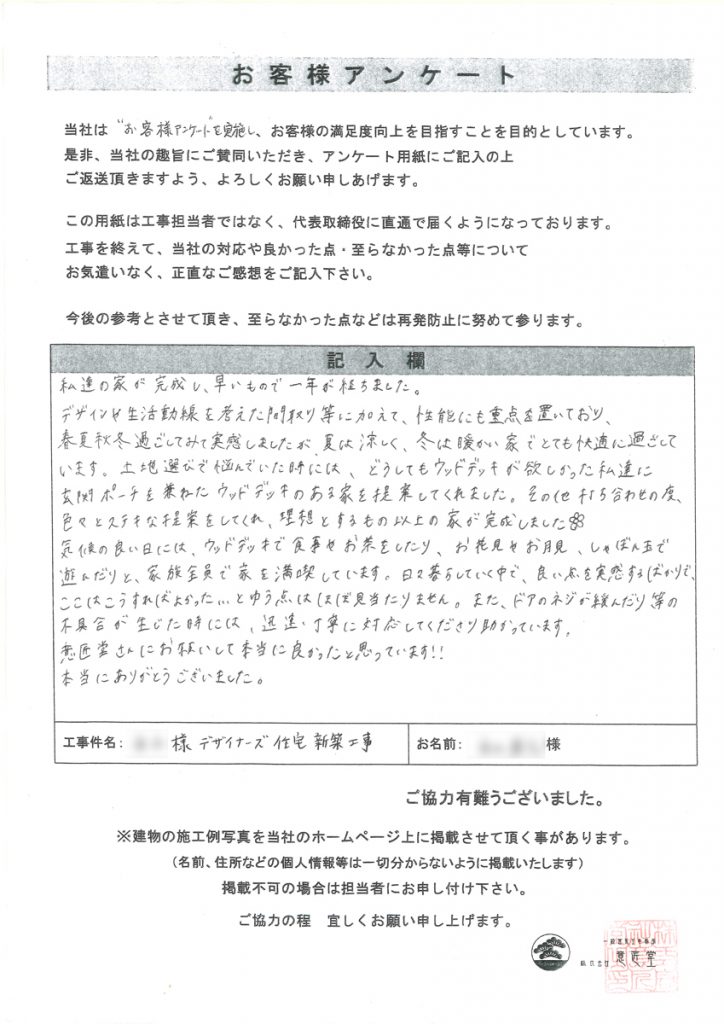 お客様アンケート
当社は"お客様アンケート"を実施し、お客様の満足度向上を目指すことを目的としています。
是非、当社の趣旨にご賛同いただき、アンケート用紙にご記入の上
ご返送頂きますよう、よろしくお願い申しあげます。
この用紙は工事担当者ではなく、代表取締役に直通で届くようになっております。
工事を終えて、当社の対応や良かった点・至らなかった点等について
お気遣いなく、正直なご感想をご記入下さい。
今後の参考とさせて頂き、至らなかった点などは再発防止に努めて参ります。
記入欄
私達の家が完成し、早いもので一年が経ちました。
デザインや生活動線を考えた間取り等に加えて、性能にも重点を置いており、
春夏秋冬過ごしてみて実感しましたが、夏は涼しく、冬は暖かい家でとても快適に過ごして
います。土地選びで悩んでいた時には、どうしてもウッドデッキが欲しかった私達に
玄関ポーチを兼ねたウッドデッキのある家を提案してくれました。その他打ち合わせの度、
色々とステキな提案をしてくれ、理想とするもの以上の家が完成しました
気候の良い日には、ウッドデッキで食事やお茶をしたり、お花見やお月見、しゃぼん玉で
遊んだりと、家族全員で家を満喫しています。日々暮らしていく中で、良い点を実感するばかりで、
ここはこうすればよかった…とゆう点はほぼ見当たりません。また、ドアのネジが緩んだり等の
不具合が生じた時には、迅速・丁寧に対応してくださり助かっています。
意匠堂さんにお願いして本当に良かったと思っています!!
本当にありがとうございました。
工事件名: 様 デザイナーズ住宅 新築工事
お名前: 様
ご協力有難うございました。
※建物の施工例写真を当社のホームページ上に掲載させて頂く事があります。
（名前、住所などの個人情報等は一切分からないように掲載いたします）
掲載不可の場合は担当者にお申し付け下さい。
ご協力の程　宜しくお願い申し上げます。
株式会社 意匠堂